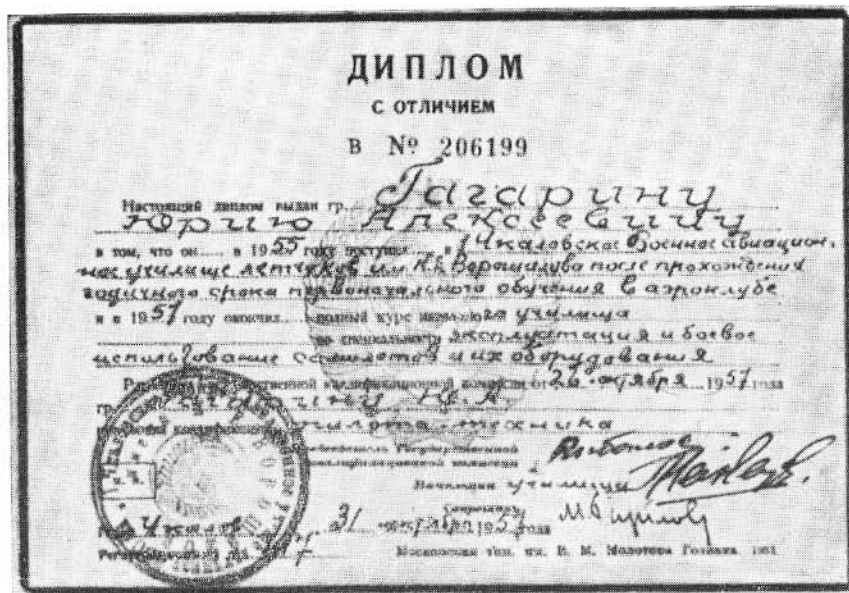 ДИПЛОМ
С ОТЛИЧИЕМ
В № 206199
Настоящий диплом выдан гр. Гагарину
Юрию Алексеевичу
в том, что он в 1955 году поступил в 1 Чкаловское Военное авиацион-
ное училище летчиков им. К.Е. Ворошилова после прохождения
годичного срока первоначального обучения в аэроклубе
и в 1957 году окончил полный курс училища
по специальности эксплуатация и боевое
использование самолетов и их оборудования
квалификационной комиссии от 26 октября 1957 года
гр. Гагарину Ю.А.
пилота-техника
Государственной
квалификационной комиссии
Начальник училища
Секретарь
Чкалов 31 октября 1957 года
Московская тип. им. В. М. Молотова Гознака.